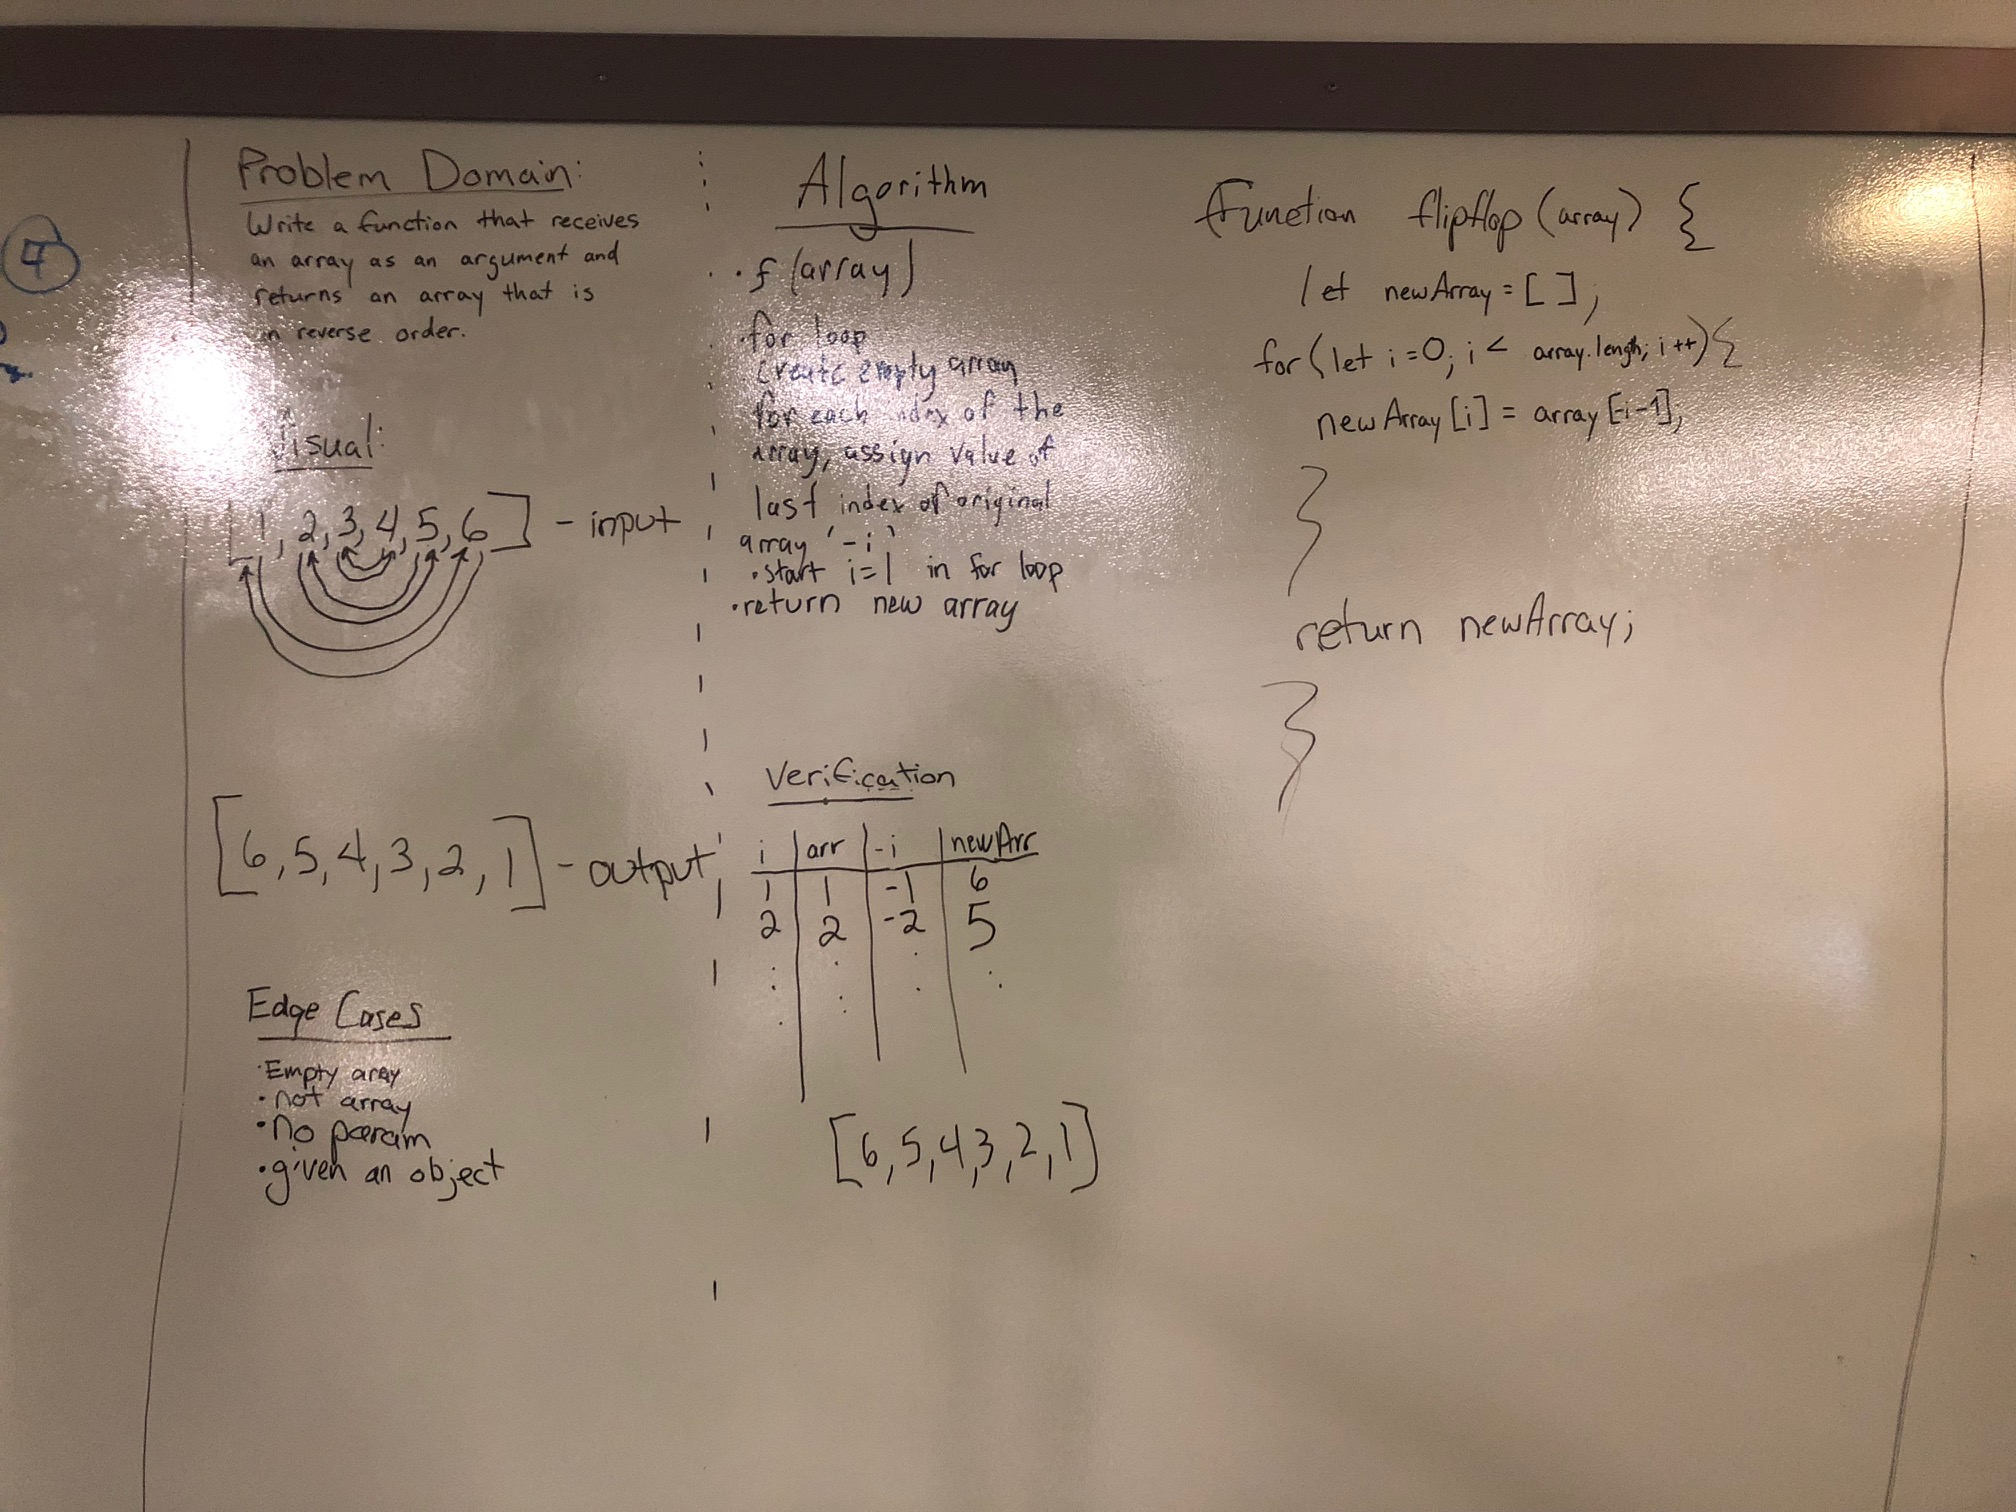 4
Problem Domain:
Write a function that receives
an array as an argument and
returns an array that is
in reverse order.
Visual:
[1, 2, 3, 4, 5, 6] - input
[6, 5, 4, 3, 2, 1] - output
Edge Cases
· Empty aray
· not array
· no param
· given an object
Algorithm
· f (array)
· for loop
create empty array
for each index of the
array, assign value of
last index of original
array '-i'
· start i=1 in for loop
· return new array
Verification
i | arr | -i | newArr
1 1 -1 6
2 2 -2 5
[6, 5, 4, 3, 2, 1]
function flipflop (array) {
let newArray = [ ];
for (let i=0; i < array.lengh; i++) {
newArray [i] = array [-i-1];
}
return newArray;
}